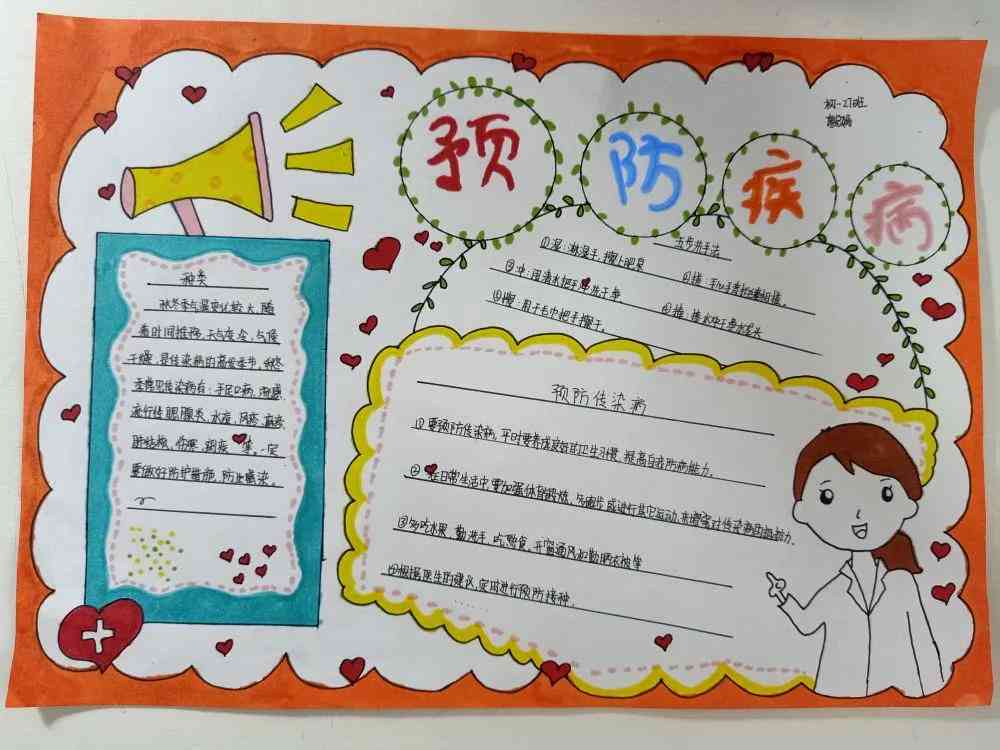 预防疾病
初一27班
五步洗手法
①湿:淋湿手,擦上肥皂
②搓:手心手背搓
③冲:用清水把手冲洗干净
④捧:捧水冲干净水龙头
⑤擦:用干毛巾把手擦干。
种类
秋冬季与温度比较大,随
着时间推移,天气变冷,气候
干燥,是传染病的高发季节,秋冬
季常见传染病有:手足口病,流感,
流行性腮腺炎,水痘,风疹,麻疹
肺结核,伤寒,等,一定
要做好防护措施,防止感染。
预防传染病
①要预防传染病,平时要养成良好的卫生习惯,提高自我防病能力。
②在日常生活中,要加强体育锻炼,多跑步或进行其它运动,来增强对传染病的抵抗力。
③多吃水果,勤洗手,吃熟食,开窗通风和勤晒衣被等
④根据医生的建议,定期进行预防接种。